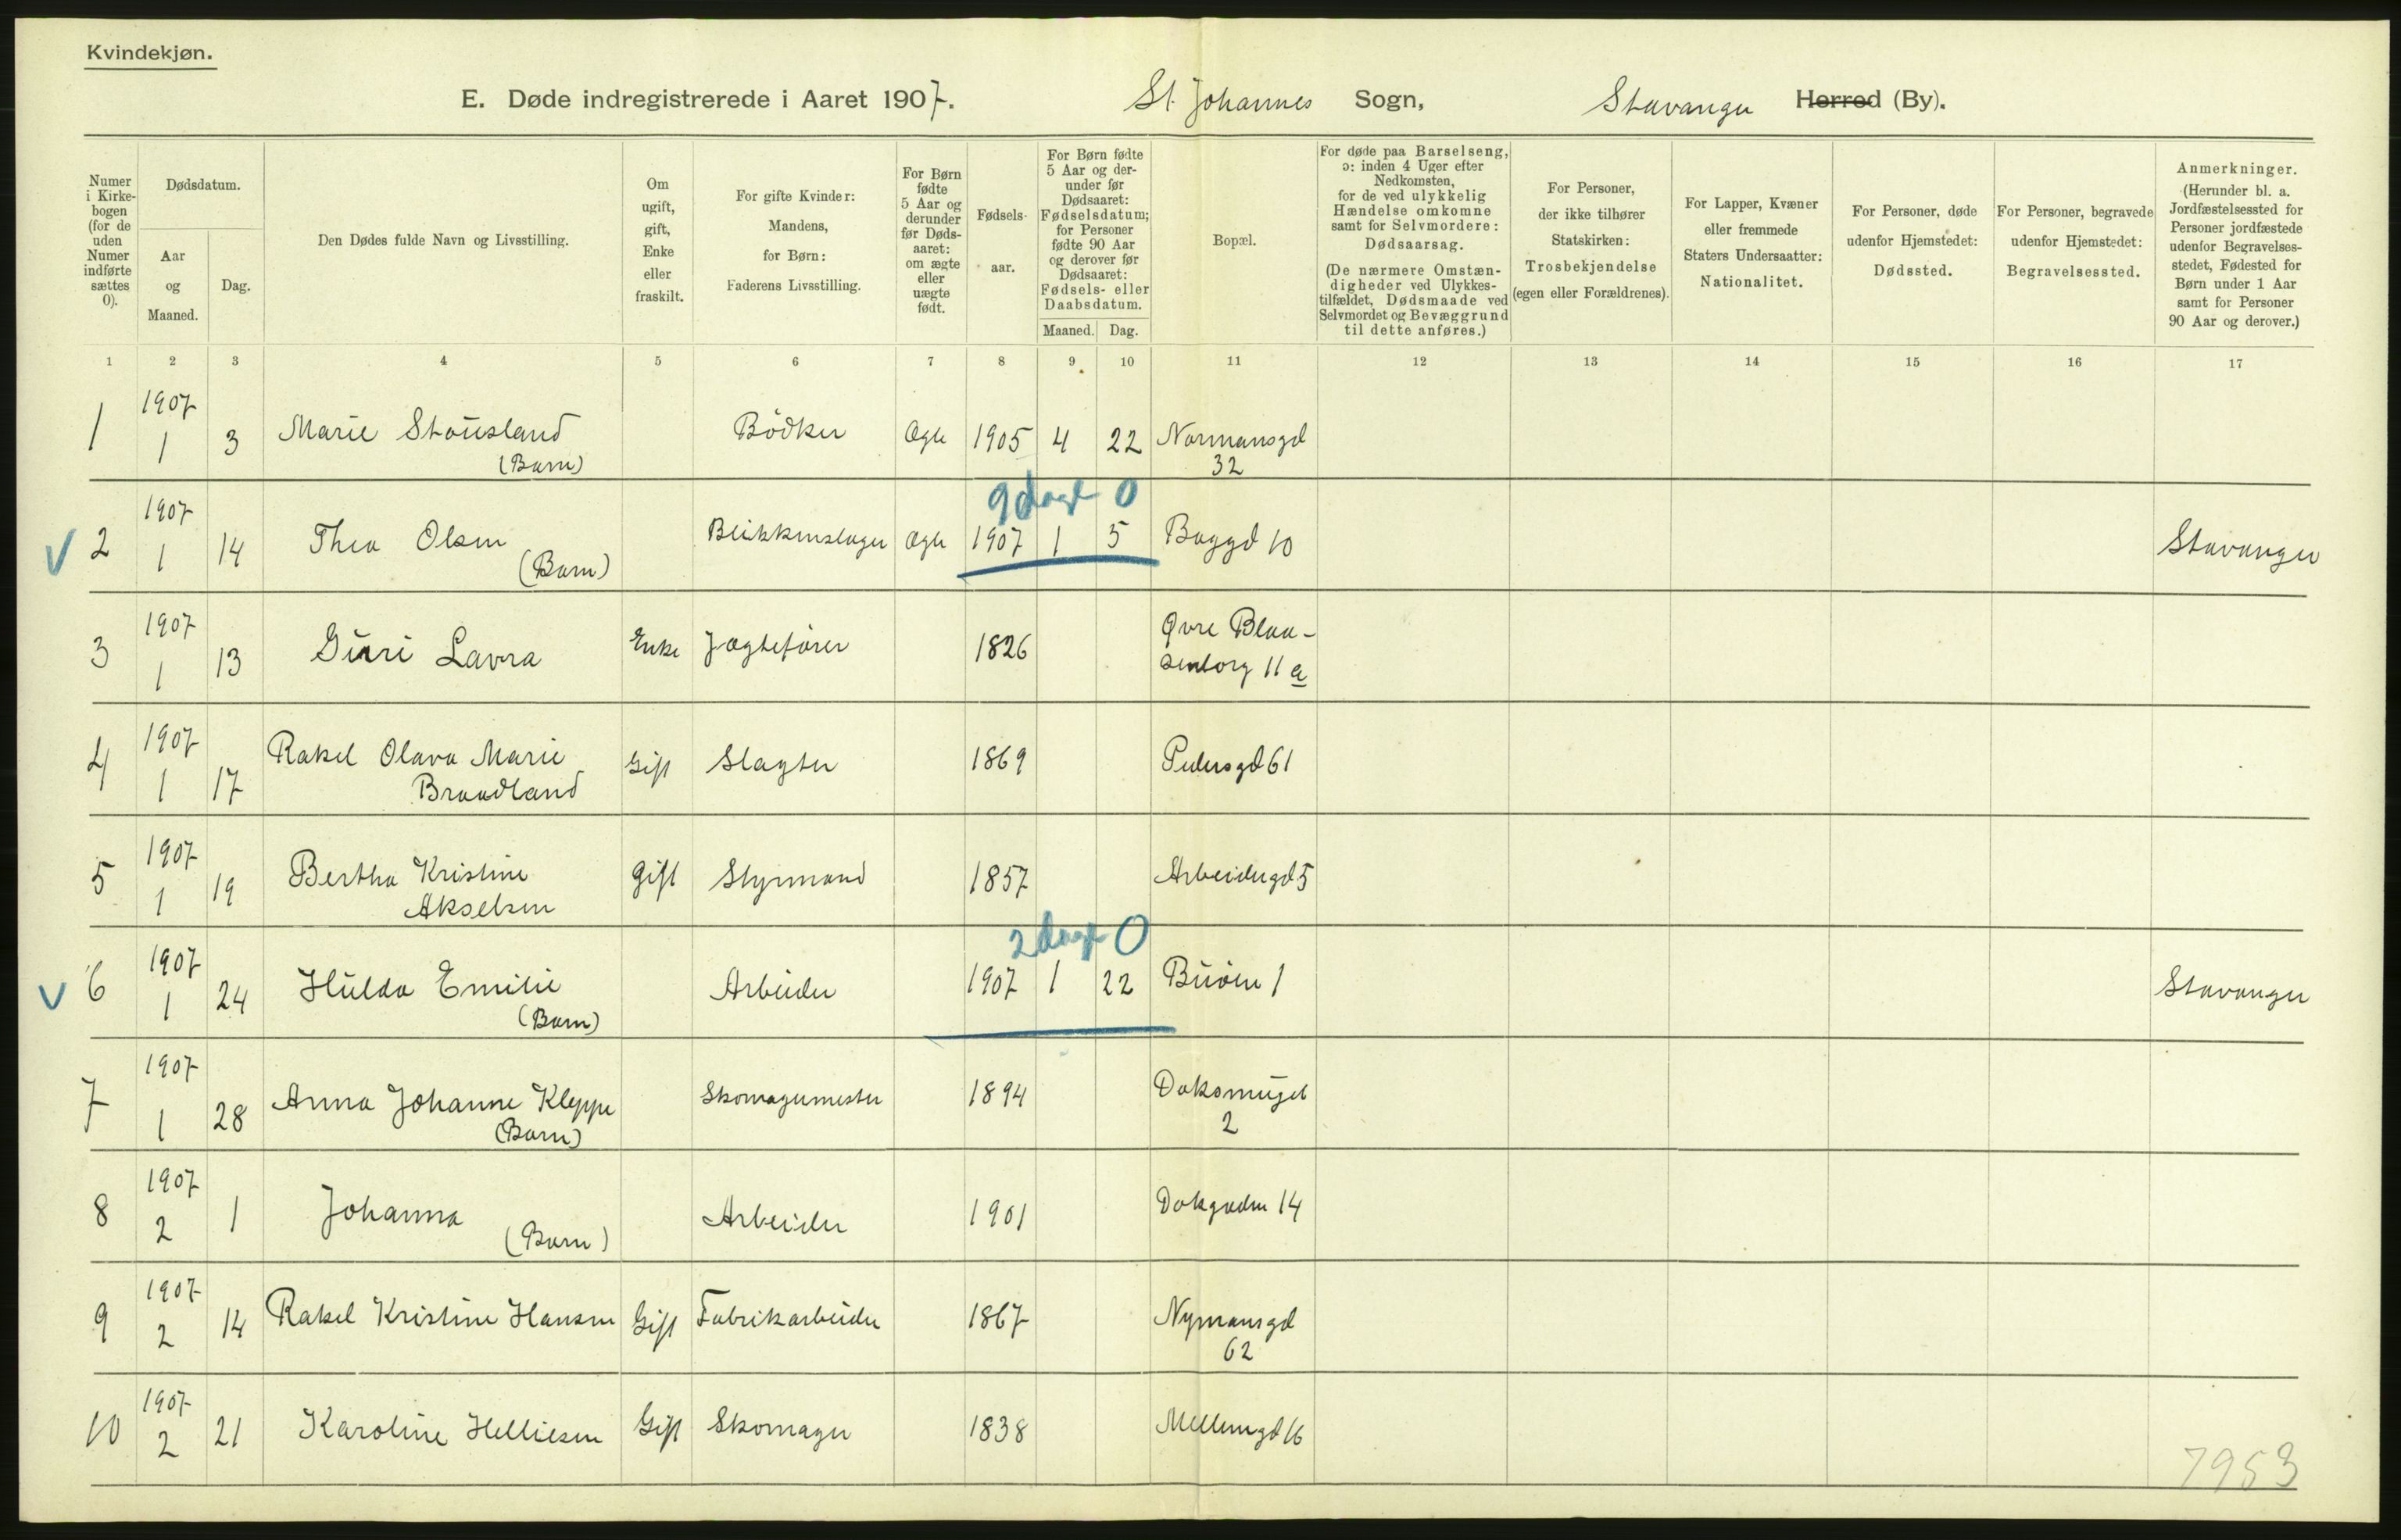 Kvindekjøn.
E. Døde indregistrerede i Aaret 1907. St. Johannes Sogn, Stavanger Herred (By).
Numer i Kirkebogen (for de uden Numer indførte sættes 0).
Dødsdatum.
Aar og Maaned.
Dag.
Den Dødes fulde Navn og Livsstilling.
Om ugift, gift, Enke eller fraskilt.
For gifte Kvinder: Mandens, for Børn: Faderens Livsstilling.
For Børn fødte 5 Aar og derunder før Dødsaaret: om ægte eller uægte født.
Fødselsaar.
For Børn fødte 5 Aar og derunder før Dødsaaret: Fødselsdatum; for Personer fødte 90 Aar og derover før Dødsaaret: Fødsels- eller Daabsdatum.
Maaned. Dag.
Bopæl.
For døde paa Barselseng, ɔ: inden 4 Uger efter Nedkomsten, for de ved ulykkelig Hændelse omkomne samt for Selvmordere: Dødsaarsag.
(De nærmere Omstændigheder ved Ulykkestilfældet, Dødsmaade ved Selvmordet og Bevæggrund til dette anføres.)
For Personer, der ikke tilhører Statskirken: Trosbekjendelse (egen eller Forældrenes).
For Lapper, Kvæner eller fremmede Staters Undersaatter: Nationalitet.
For Personer, døde udenfor Hjemstedet: Dødssted.
For Personer, begravede udenfor Hjemstedet: Begravelsessted.
Anmerkninger.
(Herunder bl. a. Jordfæstelsessted for Personer jordfæstede udenfor Begravelsesstedet, Fødested for Børn under 1 Aar samt for Personer 90 Aar og derover.)
1 2 3 4 5 6 7 8 9 10 11 12 13 14 15 16 17
1 1907 1 3 Marie Stousland (Barn) Bödker Ægte 1905 4 22 Normansgd 32
9 dage 0
V 2 1907 1 14 Thea Olsen (Barn) Blikkenslager Ægte 1907 1 5 Baggd 10 Stavanger
3 1907 1 13 Guri Lavra Enke Jagtefører 1826 Øvre Blaasenborg 11 a
4 1907 1 17 Rakel Olava Marie Braadland Gift Slagter 1869 Pedersgd 61
5 1907 1 19 Bertha Kristine Akselsen Gift Styrmand 1857 Arbeidergd 5
2 dage 0
V 6 1907 1 24 Hulda Emilie (Barn) Arbeider 1907 1 22 Buöen 1 Stavanger
7 1907 1 28 Anna Johanne Kleppe (Barn) Skomagermester 1894 2
8 1907 2 1 Johanna (Barn) Arbeider 1901 Dokgaden 14
9 1907 2 14 Rakel Kristine Hansen Gift Fabrikarbeider 1867 Nymansgd 62
10 1907 2 21 Karoline Helliesen Gift Skomager 1838 Mellemgd 16
7953